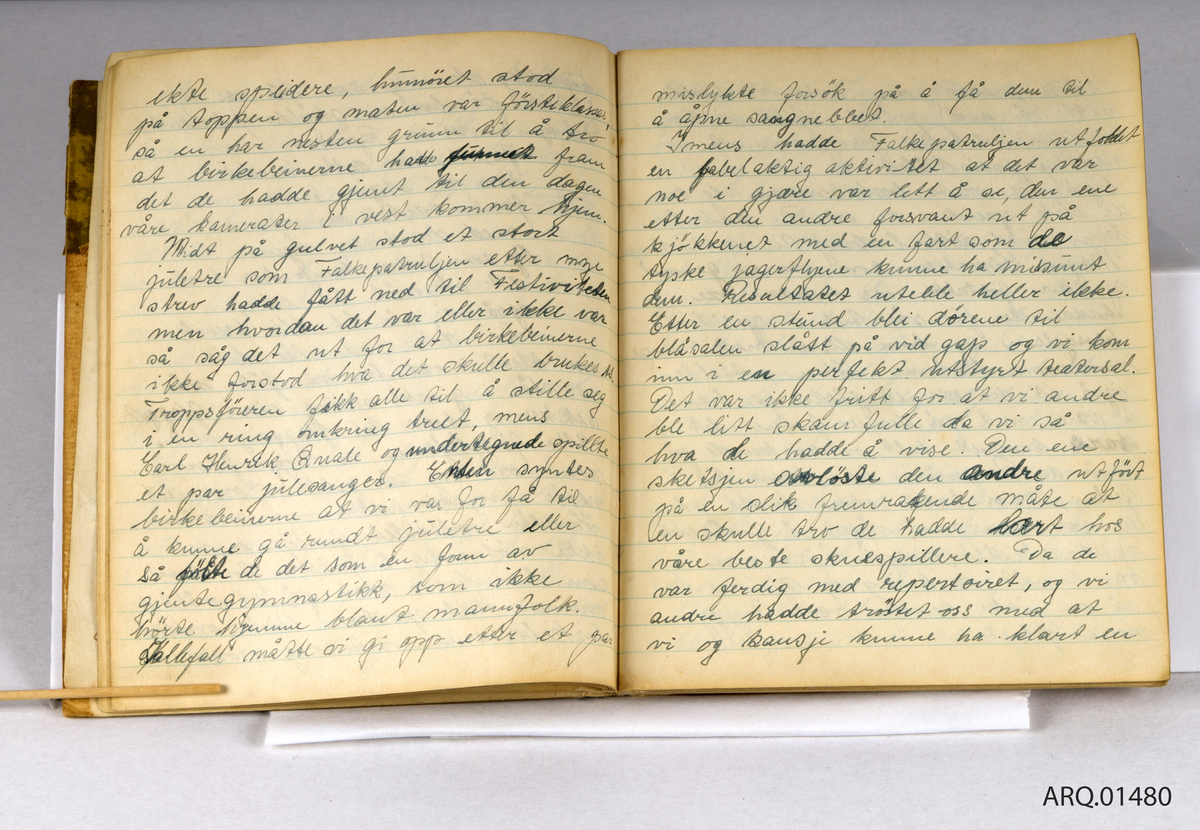 ekte speidere, humöret stod
på toppen og maten var förstiklasses,
så en har nesten grunn til å tro
at birkebeinerne hadde funnet fram
det de hadde gjemt til den dagen
våre kamerater i vest kommer hjem.
Midt på gulvet stod et stort
juletre som Falkepatruljen etter mye
strev hadde fått ned til Festiviteten
men hvordan det var eller ikke var
så såg det ut for at birkebeinerne
ikke forstod hva det skulle brukes til.
Troppsföreren fikk alle til å stille seg
i en ring omkring treet, mens
Carl Henrik Qvale og undertegnede spillte
et par julesanger. Enten syntes
birkebeinerne at vi var for få til
å kunne gå rundt juletre eller
så følte de det som en form av
gjentegymnastikk, som ikke
hörte hjemme blant mannfolk.
Iallefall måtte vi gi opp etter et par
mislykte forsök på å få dem til
å åpne sangnebbet.
Imens hadde Falkepatruljen utfoldet
en fabelaktig aktivitet at det var
noe i gjære var lett å se, den ene
etter den andre forsvant ut på
kjökkenet med en fart som de
tyske jagerflyene kunne ha misunt
dem. Resultatet uteble heller ikke.
Etter en stund blei dörene til
blåsalen slått på vid gap og vi kom
inn i en perfekt utstyrt teatersal.
Det var ikke fritt for at vi andre
ble litt skamfulle da vi så
hva de hadde å vise. Den ene
sketsjen avlöste den andre utfört
på en slik fremrakende måte at
en skulle tro de hadde lært hos
våre beste skuespillere. Da de
var ferdig med repertoiret, og vi
andre hadde tröstet oss med at
vi og kansje kunne ha klart en
ARQ.01480